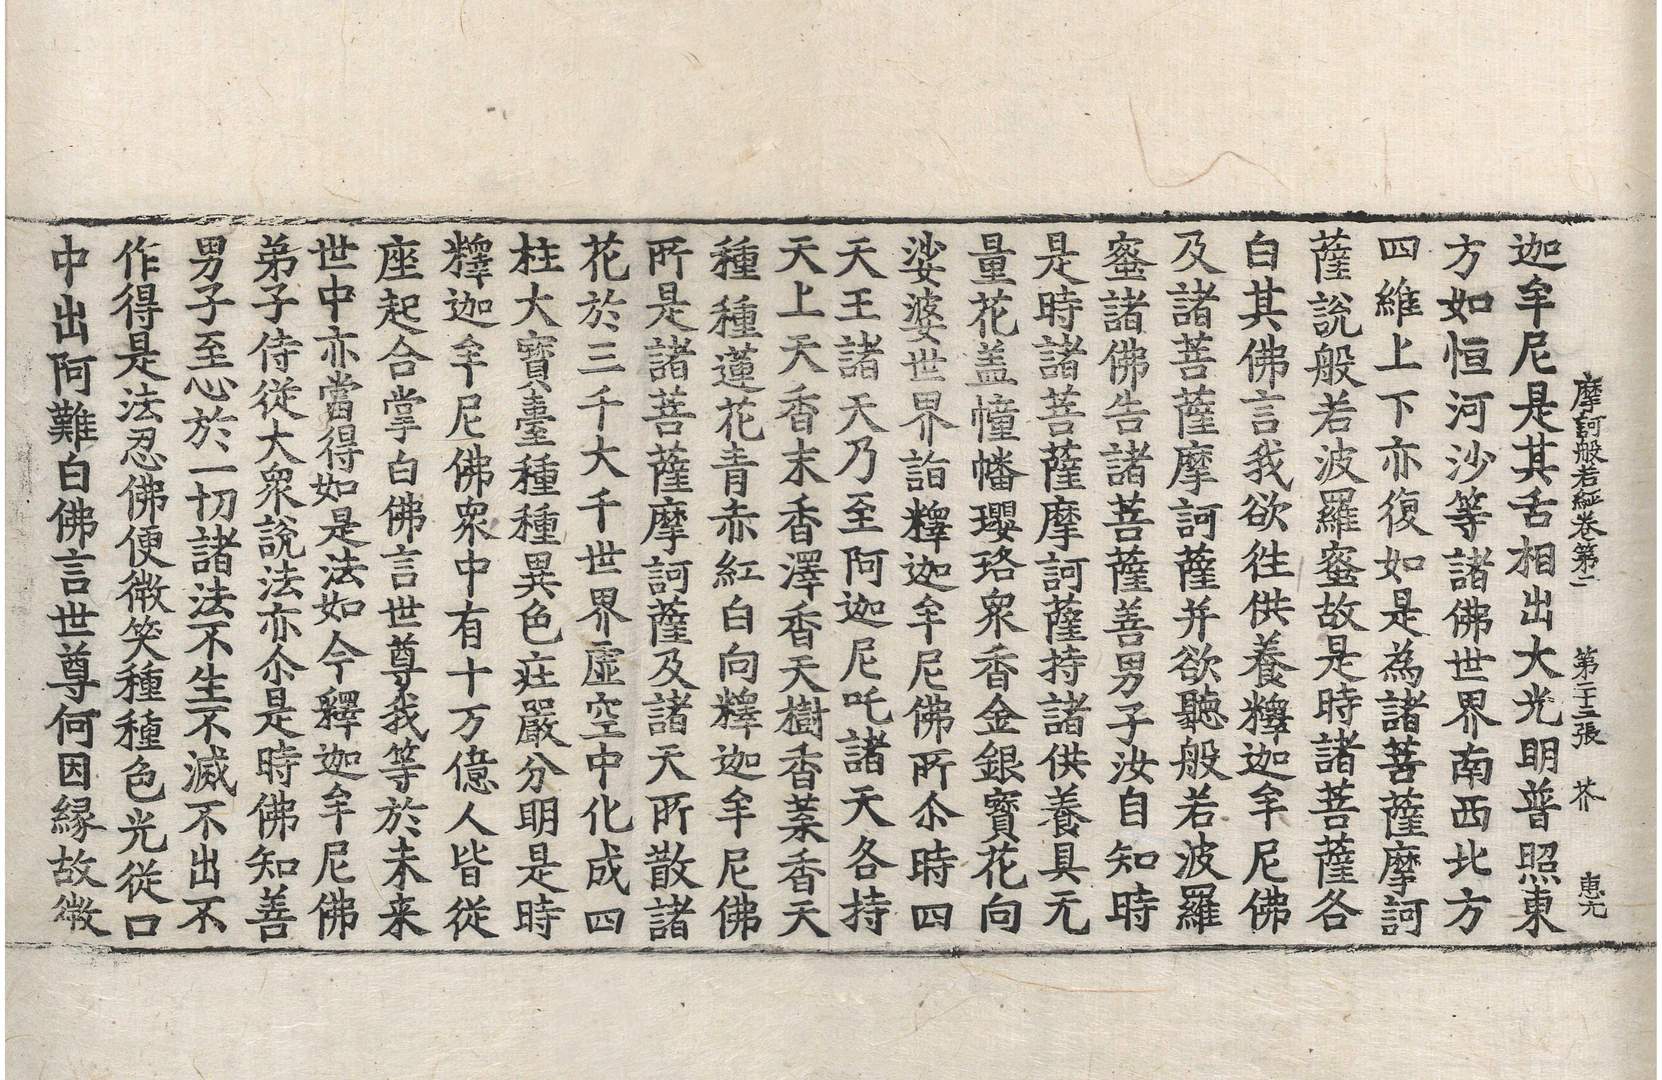 摩訶般若經卷第二 第二十三張 芥 惠允
迦牟尼是其舌相出大光明普照東
方如恒河沙等諸佛世界南西北方
四維上下亦復如是為諸菩薩摩訶
薩說般若波羅蜜故是時諸菩薩各
白其佛言我欲徃供養釋迦牟尼佛
及諸菩薩摩訶薩并欲聽般若波羅
蜜諸佛告諸菩薩善男子汝自知時
是時諸菩薩摩訶薩持諸供養具无
量花盖幢幡瓔珞衆香金銀寶花向
娑婆世界詣釋迦牟尼佛所尒時四
天王諸天乃至阿迦尼吒諸天各持
天上天香末香澤香天樹香葉香天
種種蓮花青赤紅白向釋迦牟尼佛
所是諸菩薩摩訶薩及諸天所散諸
花於三千大千世界虛空中化成四
柱大寶臺種種異色莊嚴分明是時
釋迦牟尼佛衆中有十万億人皆從
座起合掌白佛言世尊我等於未来
世中亦當得如是法如今釋迦牟尼佛
弟子侍從大衆說法亦尒是時佛知善
男子至心於一切諸法不生不滅不出不
作得是法忍佛便微笑種種色光從口
中出阿難白佛言世尊何因縁故微